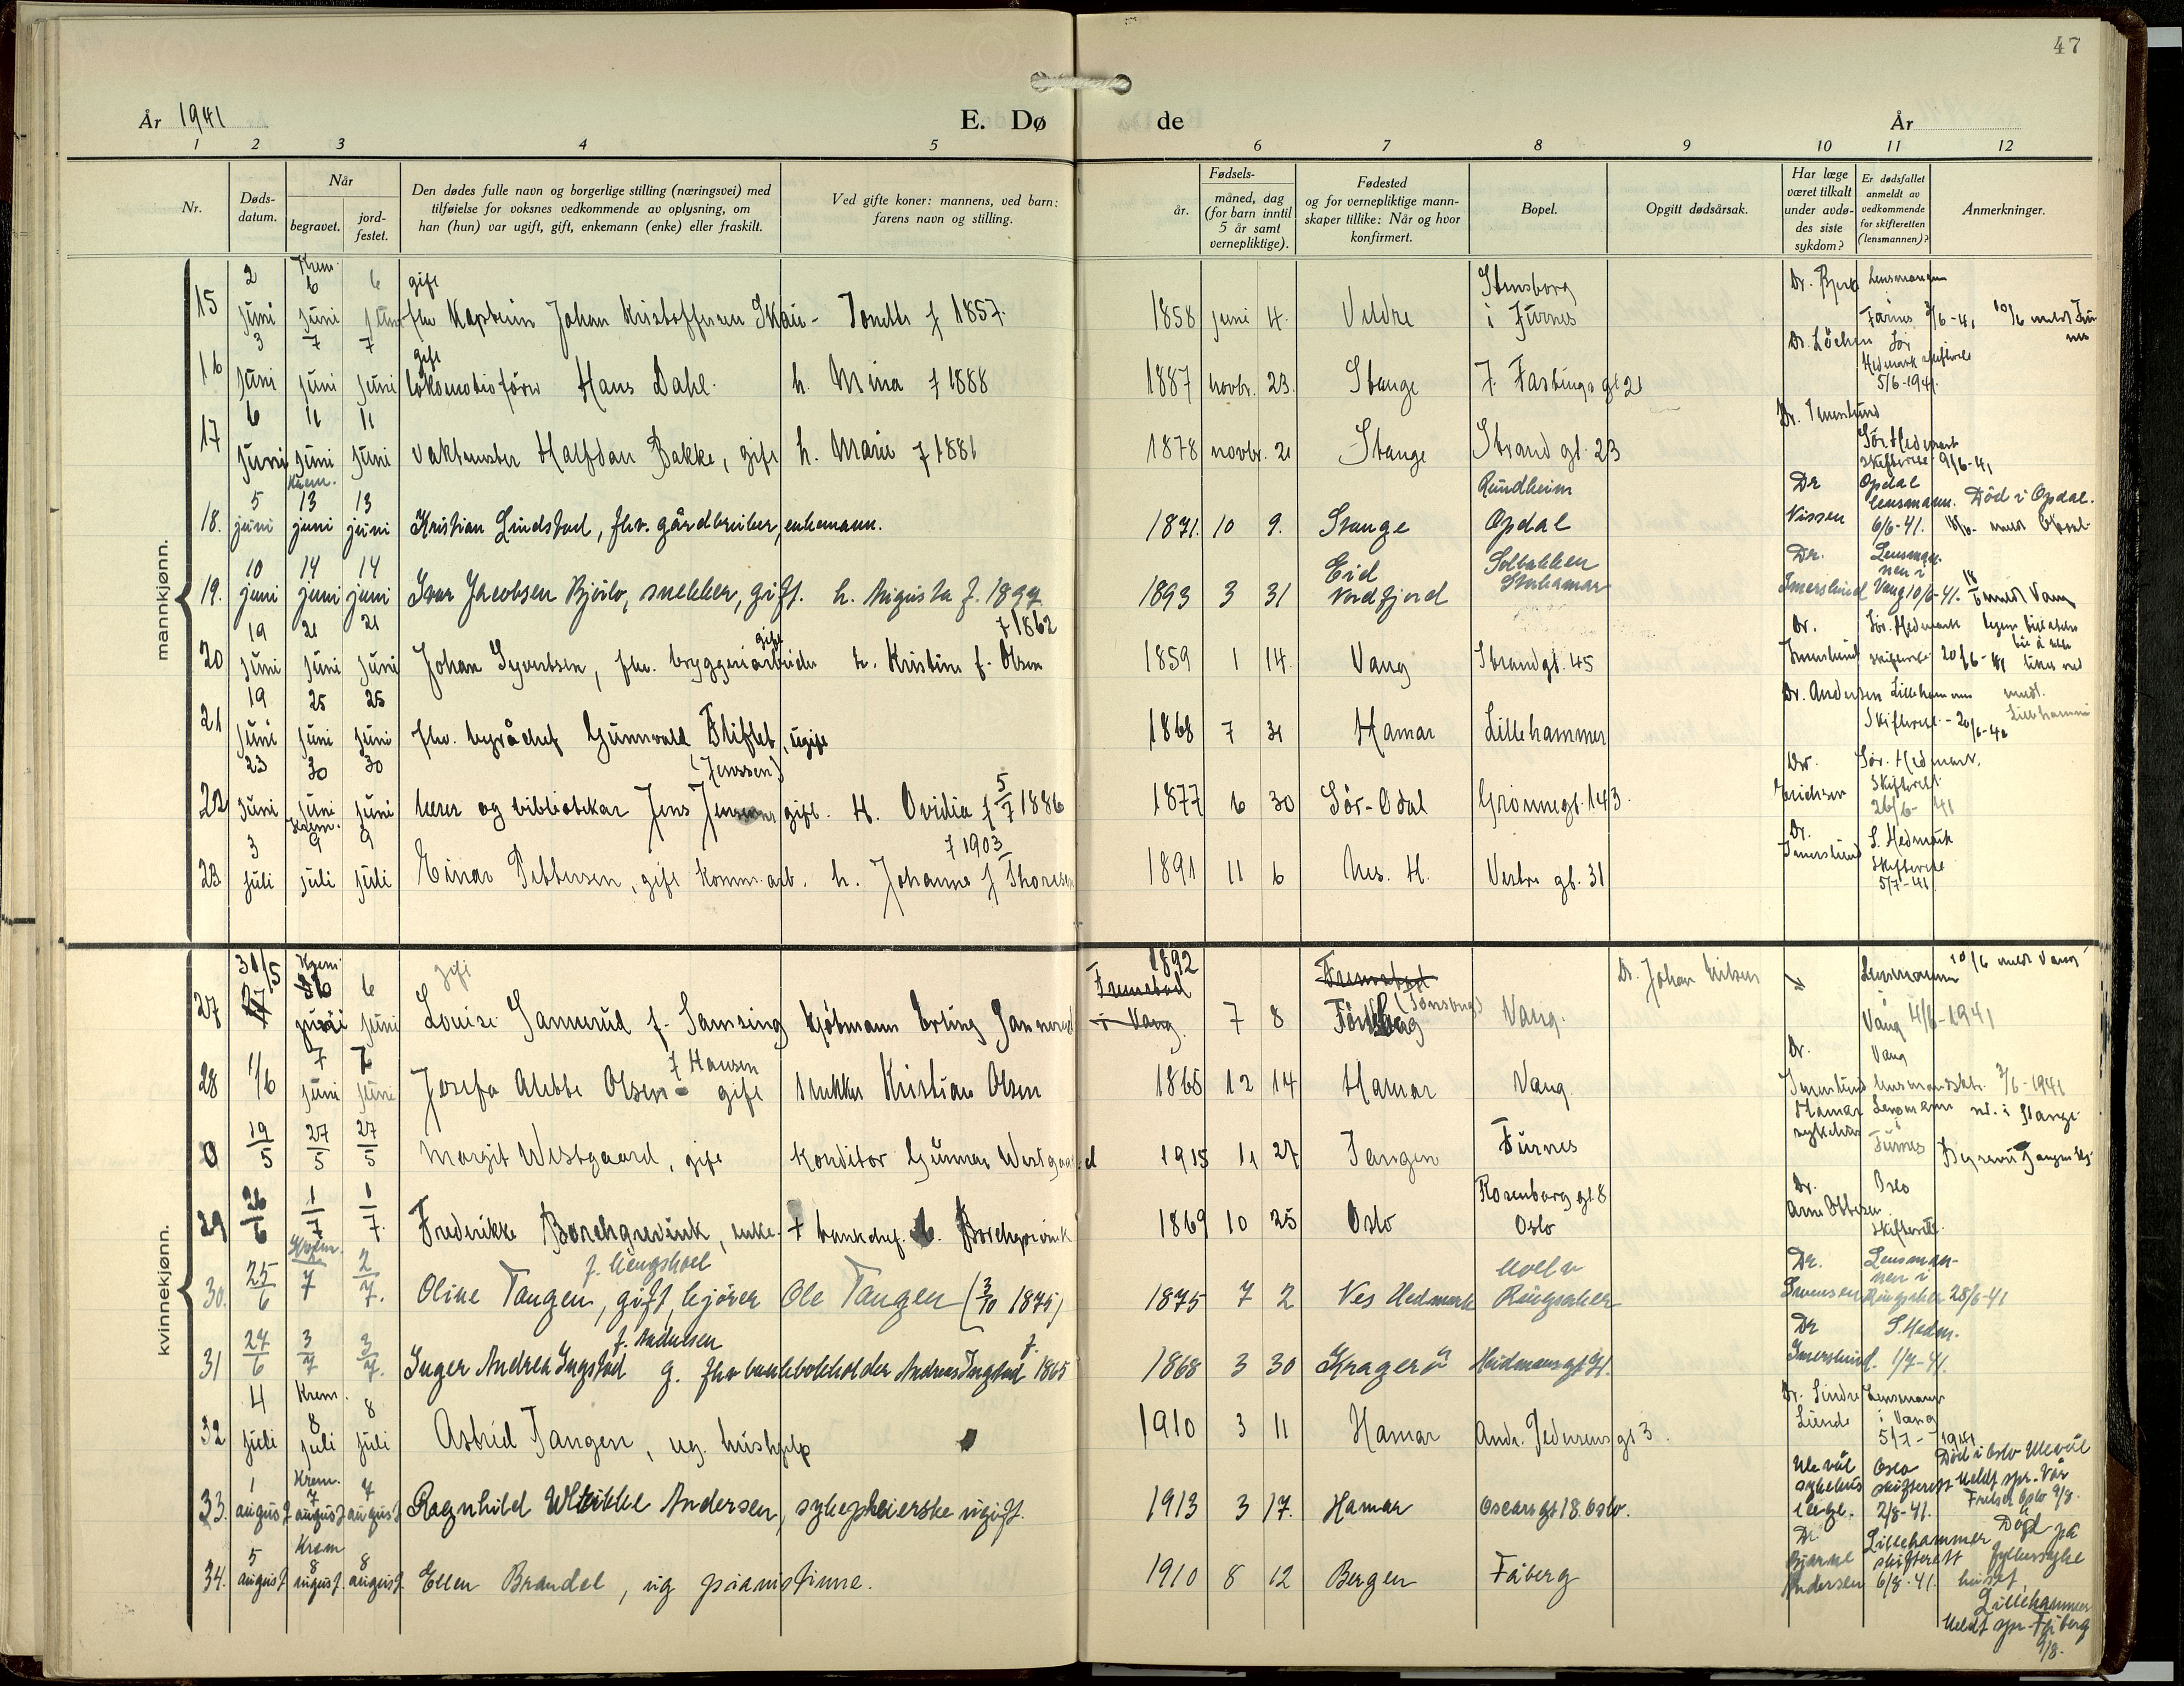 47
År 1941
E. Dø de
År
1 2 3 4 5 6 7 8 9 10 11 12
Nr.
Døds-datum.
Når
begravet.
jord-festet.
Den dødes fulle navn og borgerlige stilling (næringsvei) med
tilføielse for voksnes vedkommende av oplysning, om
han (hun) var ugift, gift, enkemann (enke) eller fraskilt.
Ved gifte koner: mannens, ved barn:
farens navn og stilling.
Fødsels-
år.
måned, dag
(for barn inntil
5 år samt
vernepliktige).
Fødested
og for vernepliktige mann-
skaper tillike: Når og hvor
konfirmert.
Bopel.
Opgitt dødsårsak.
Har læge
været tilkalt
under avdø-
des siste
sykdom?
Er dødsfallet
anmeldt av
vedkommende
for skifteretten
(lensmannen)?
Anmerkninger.
mannkjønn.
15 2 juni Krem. 6 juni 6 juni gift fhv Kaptein Johan Kristoffersen Skau - f 1857. 1858 juni 4. Veldre Stensborg i Furnes Furnes 3/6-41
16 3 juni 7 juni 7 juni gift lokomotivfører Hans Dahl. h. Mina f 1888 1887 novbr. 23. Stange J. Fastings gt 21 Dr. Løchen Sør Hedmark skifterett 5/6-1941.
17 6 juni 11 juni 11 juni vaktmester Halfdan Bakke, gift h. Marie f 1881 1878 novbr. 21 Stange Strand gt. 23 Sør Hedmark skifterett 9/6-41
18. 5 juni Krem. 13 juni 13 juni Kristian Lindstad, fhv. gårdbruker, enkemann. 1871. 10 9. Stange Rundheim Opdal Dr Nissen Opdal lensmann. 6/6-41. Død i Opdal.
19. 10 juni 14 juni 14 juni Ivar Jacobsen Bjørlo, snekker, gift. h. Augusta f. 1897 1893 3 31 Eid Nordfjord Solbakken Storhamar Dr. Imerslund Lensmannen i Vang 10/6-41. meldt Vang
20 19 juni 21 juni 21 juni Johan Syvertsen, fhv. bryggeriarbeider gift h. Kristine f. Olsen f 1862 1859 1 14. Vang Strandgt. 45 Dr. Imerslund Sør. Hedmark skifterett 20/6-41
21 19 juni 25 juni 25 juni fhv. byråchef Gunnvald Fliflet, ugift 1868 7 31 Hamar Lillehammer Dr. Andersen Lillehammer Skifterett - 20/6-41 meldt. Lillehammer
22 23 juni 30 juni 30 juni lærer og bibliotekar Jens Jenssen (Jenssen) gift. H. Ovidia f 5/7 1886 1877 6 30 Sør-Odal Grønnegt. 143. Dr. Erichsen Sør. Hedmark. Skifterett 26/6-41
23. 3 juli Krem. 9 juli 9 juli Einar Pettersen, gift komm. arb. h. Johanne f Thoresen f 1903 1891 11 6 Nes. H. Vestre gt. 31 Dr. Imerslund S. Hedmark Skifterett 5/7-41
kvinnekjønn.
27 31/5 Krem. 6 juni 6 juni gift Louise Sannerud f. Samsing kjøbmann Erling Sannerud 1892 7 8 Vang. Dr. Johan Lensmannen Vang 4/6-1941 10/6 meldt Vang
28 1/6 7 juni 7 juni Josefa Alette Olsen f Hansen gift snekker Kristian Olsen 1865 12 14 Hamar Vang. Dr. Imerslund Vang lensmandsktr. 3/6-1941
0 19/5 27/5 27/5 Margit Westgaard, gift konditor Gunnar Westgaard 1915 11 27 Tangen Furnes Hamar sykehus Lensmann Furnes
29 26/6 1/7 1/7. Frederikke Borchgrevink, enke. + bankchef. Borchgrevink 1869 10 25 Oslo Rosenborg gt. 8 Oslo Dr. Arne Oslo Skifterett.
30. 25/6 Krem. 7 2/7. Oline Tangen, f. Lengshoel gift kjører Ole Tangen (3/10 1875) 1875 7 2 Nes Hedmark Ringsaker Dr. Lensmannen i Ringsaker 28/6-41
31 27/6 3/7 3/7. Inger Andrea Ingstad f. Andersen g. fhv Andreas Ingstad f. 1865 1868 3 30 Kragerø Heidmannsgt. Dr Imerslund. S. Hedm. 1/7-41.
32 4 juli Krem. 8 juli 8 juli Astrid Tangen, ug. hushjelp 1910 3 11 Hamar Andr. Pedersens gt 3. Dr. Sindre Lunde Lensmann i Vang 5/7-1941
33. 1 august Krem. 7 august 7 august Ragnhild Andersen, sykepleierske ugift. 1913 3 17. Hamar Oscars gt 18. Oslo. Ullevål sykehus læge. Oslo skifterett 2/8-41. Død i Oslo Ullevål Meldt spr. Vår Frelser Oslo 9/8.
34. 5 august Krem 8 august 8 august Ellen Brandel, ug pianistinne. 1910 8 12 Bergen Fåberg Dr. Bjarne Andersen Lillehammer skifterett 6/8-41. Død på fylkessykehuset, Lillehammer Meldt spr. Fåberg 9/8.